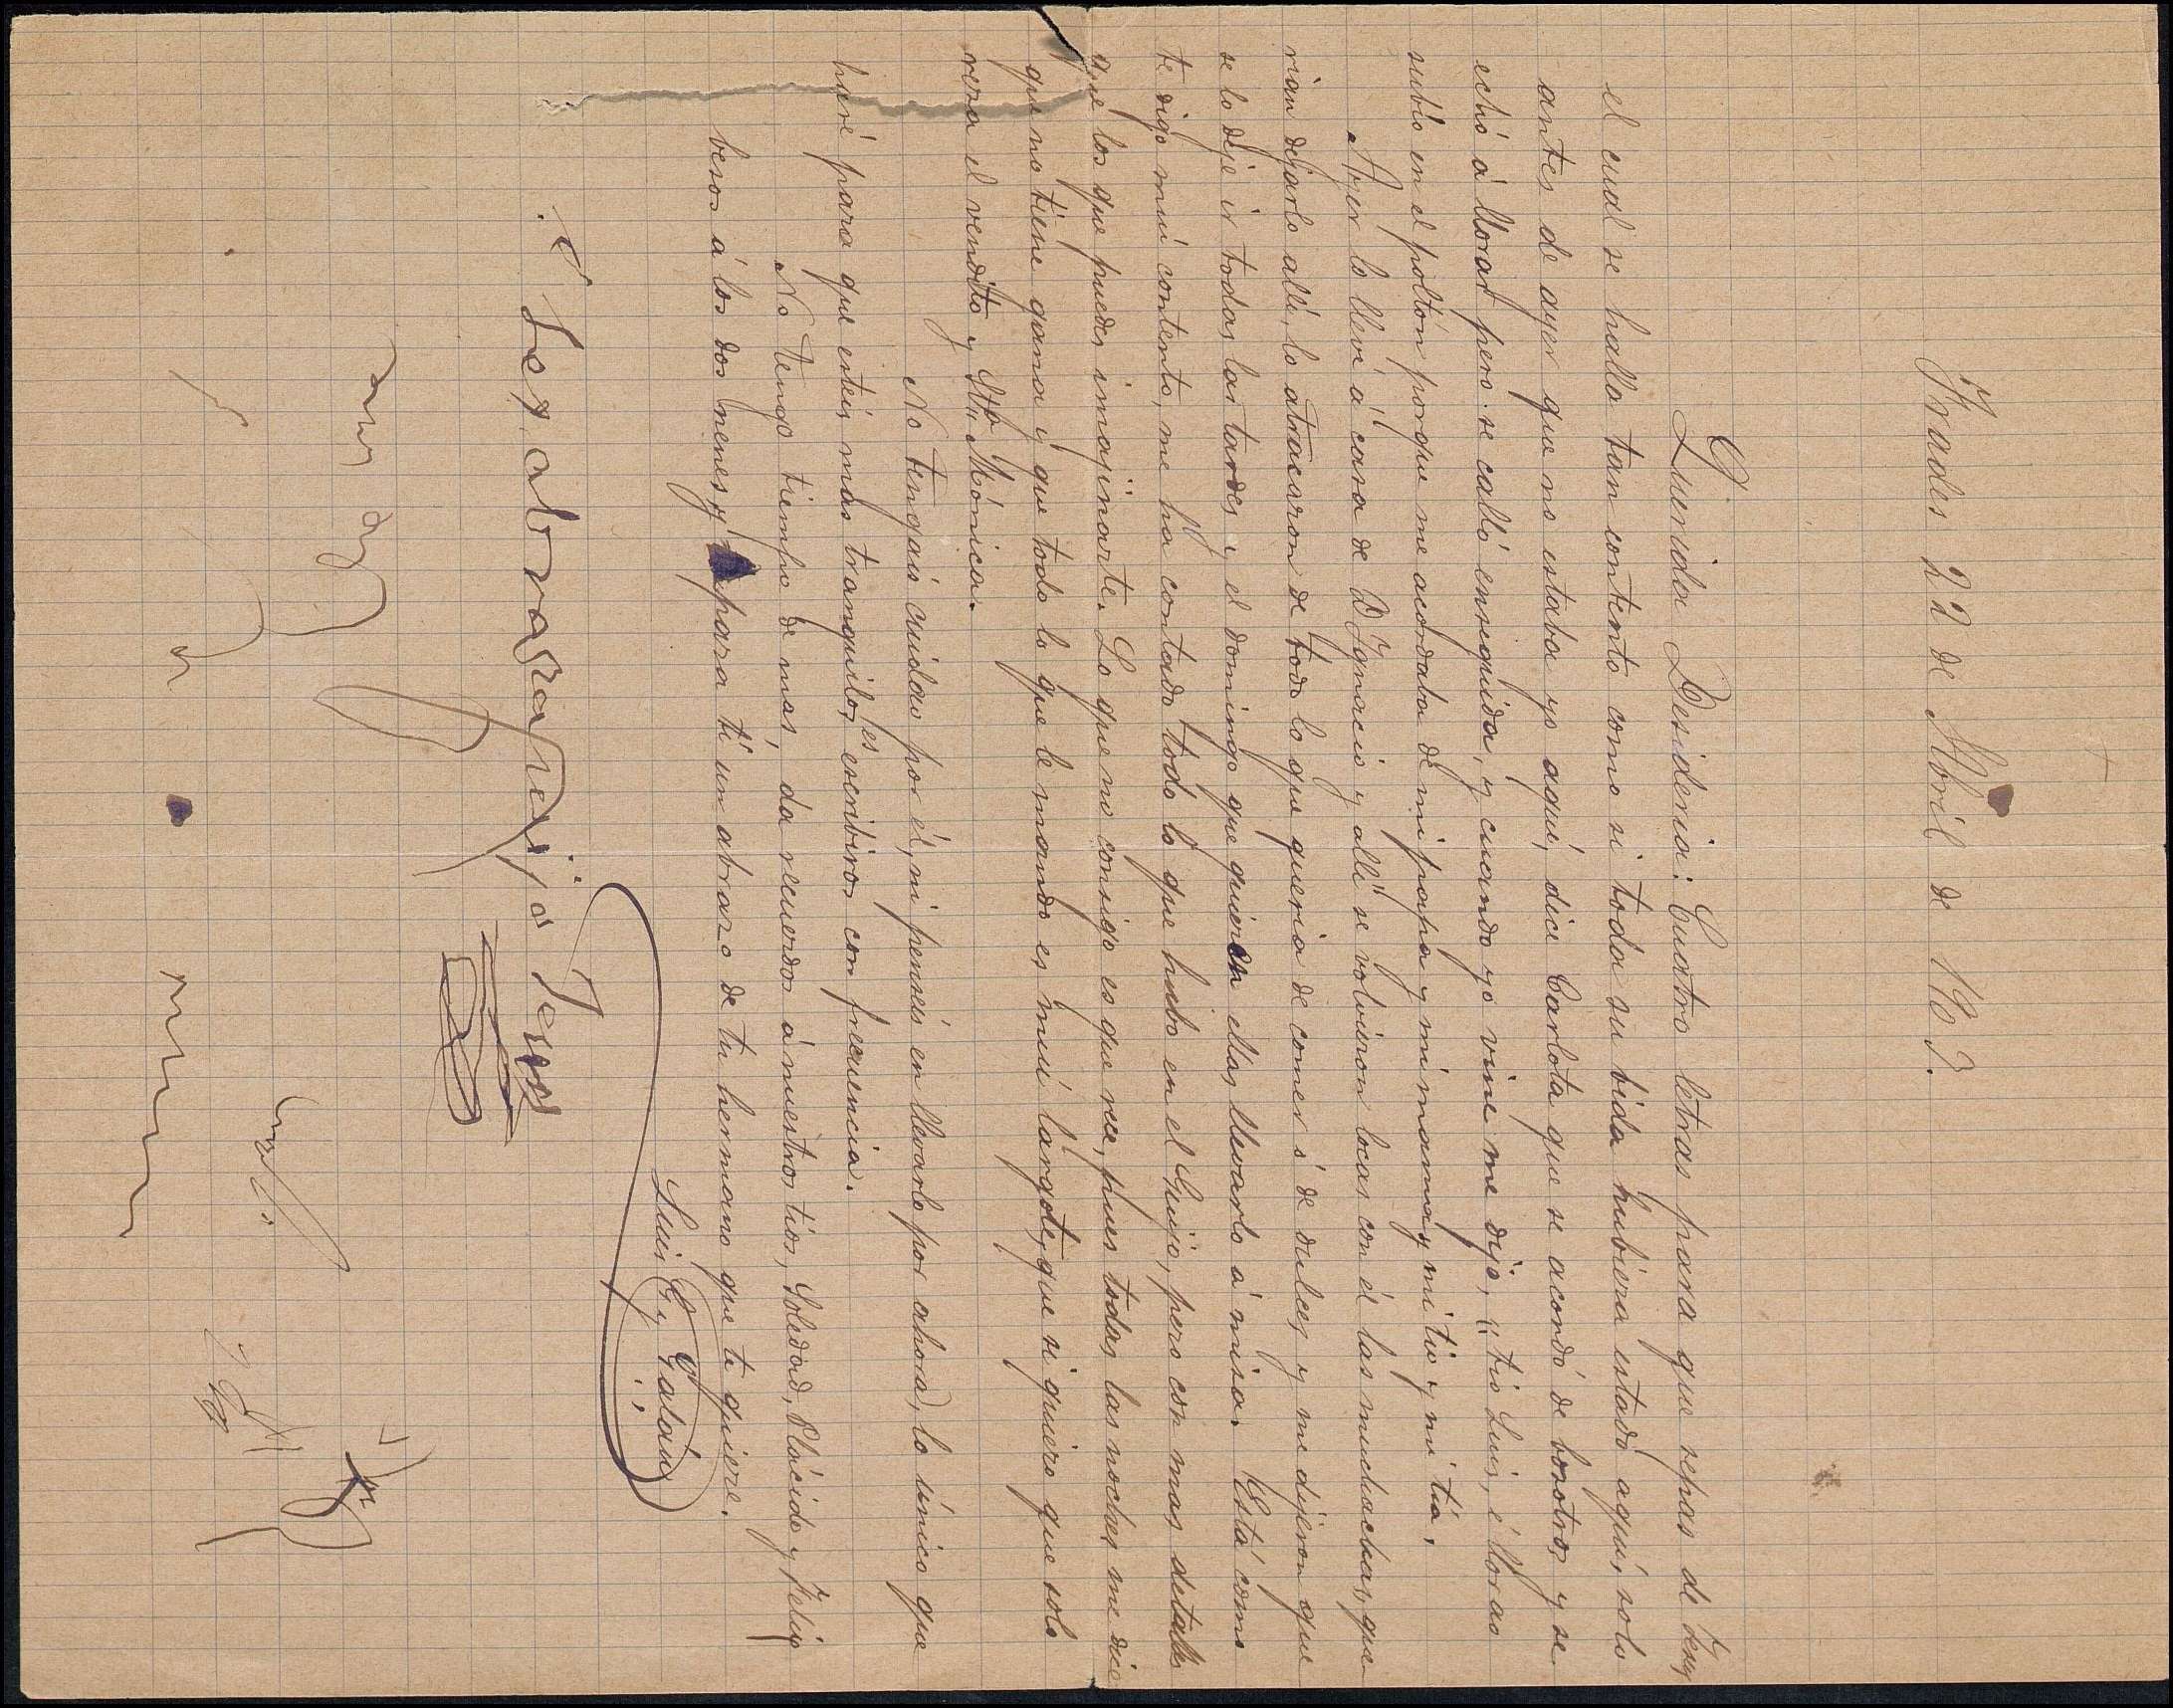 Frades 22 de Abril de 1903.
Querida Desideria: Cuatro letras para que sepas de Jesus
el cual se halla tan contento como si toda su bida hubiera estado aquí, solo
antes de ayer que no estaba yo aquí, dice Carlota que se acordó de bosotros y se
echó á llorar pero se calló enseguida, y cuando yo vine me dijo, "tio Luis, é llorao
subío en el poltón porque me acordaba de mi papá y mi mamá y mi tio y mi tia,
Ayer lo llevé á casa de D Ignacio y allí se volvieron locas con él las muchachas, que-
rian dejarlo allí, lo atracaron de todo lo que queria de comer ó de dulces y me dijeron que
se lo deje ir todas las tardes y el domingo que quieren ellas llevarlo á misa. Está como
te digo múi contento, me ha contado todo lo que hubo en el Guijo, pero con mas detalles
que los que puedes imajinarte. Lo que no consigo es que rece, pues todas las noches me dice
que no tiene gana y que todo lo que le mando es múi largote, que si quiero que solo
reza el vendito y Sta Mónica.
No tengais cuidao por él, ni penseis en llevarlo por ahora, lo único que
haré para que esteis mas tranquilos, es escribiros con frecuencia.
No tengo tiempo de mas, da recuerdos á nuestros tios, Soledad, Plácido y Felix
besos á los dos nenes y para ti un abraso de tu hermano que te quiere.
Luis G. y Galán
Les abraza su hijo Jesus